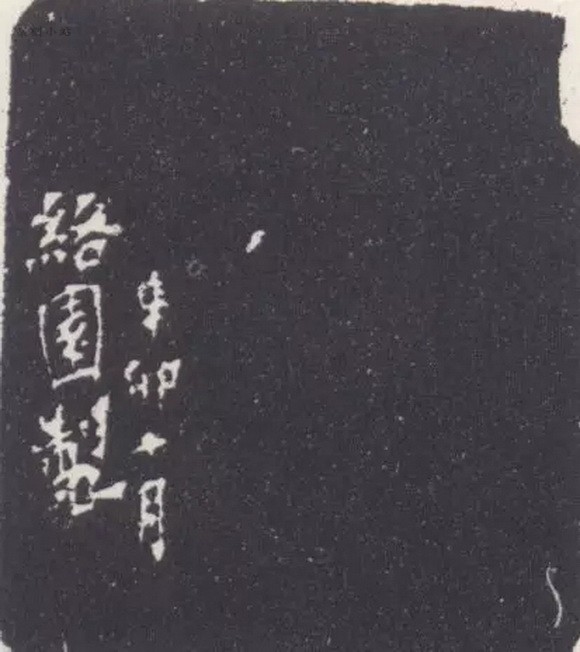 辛卯十月
絡園製